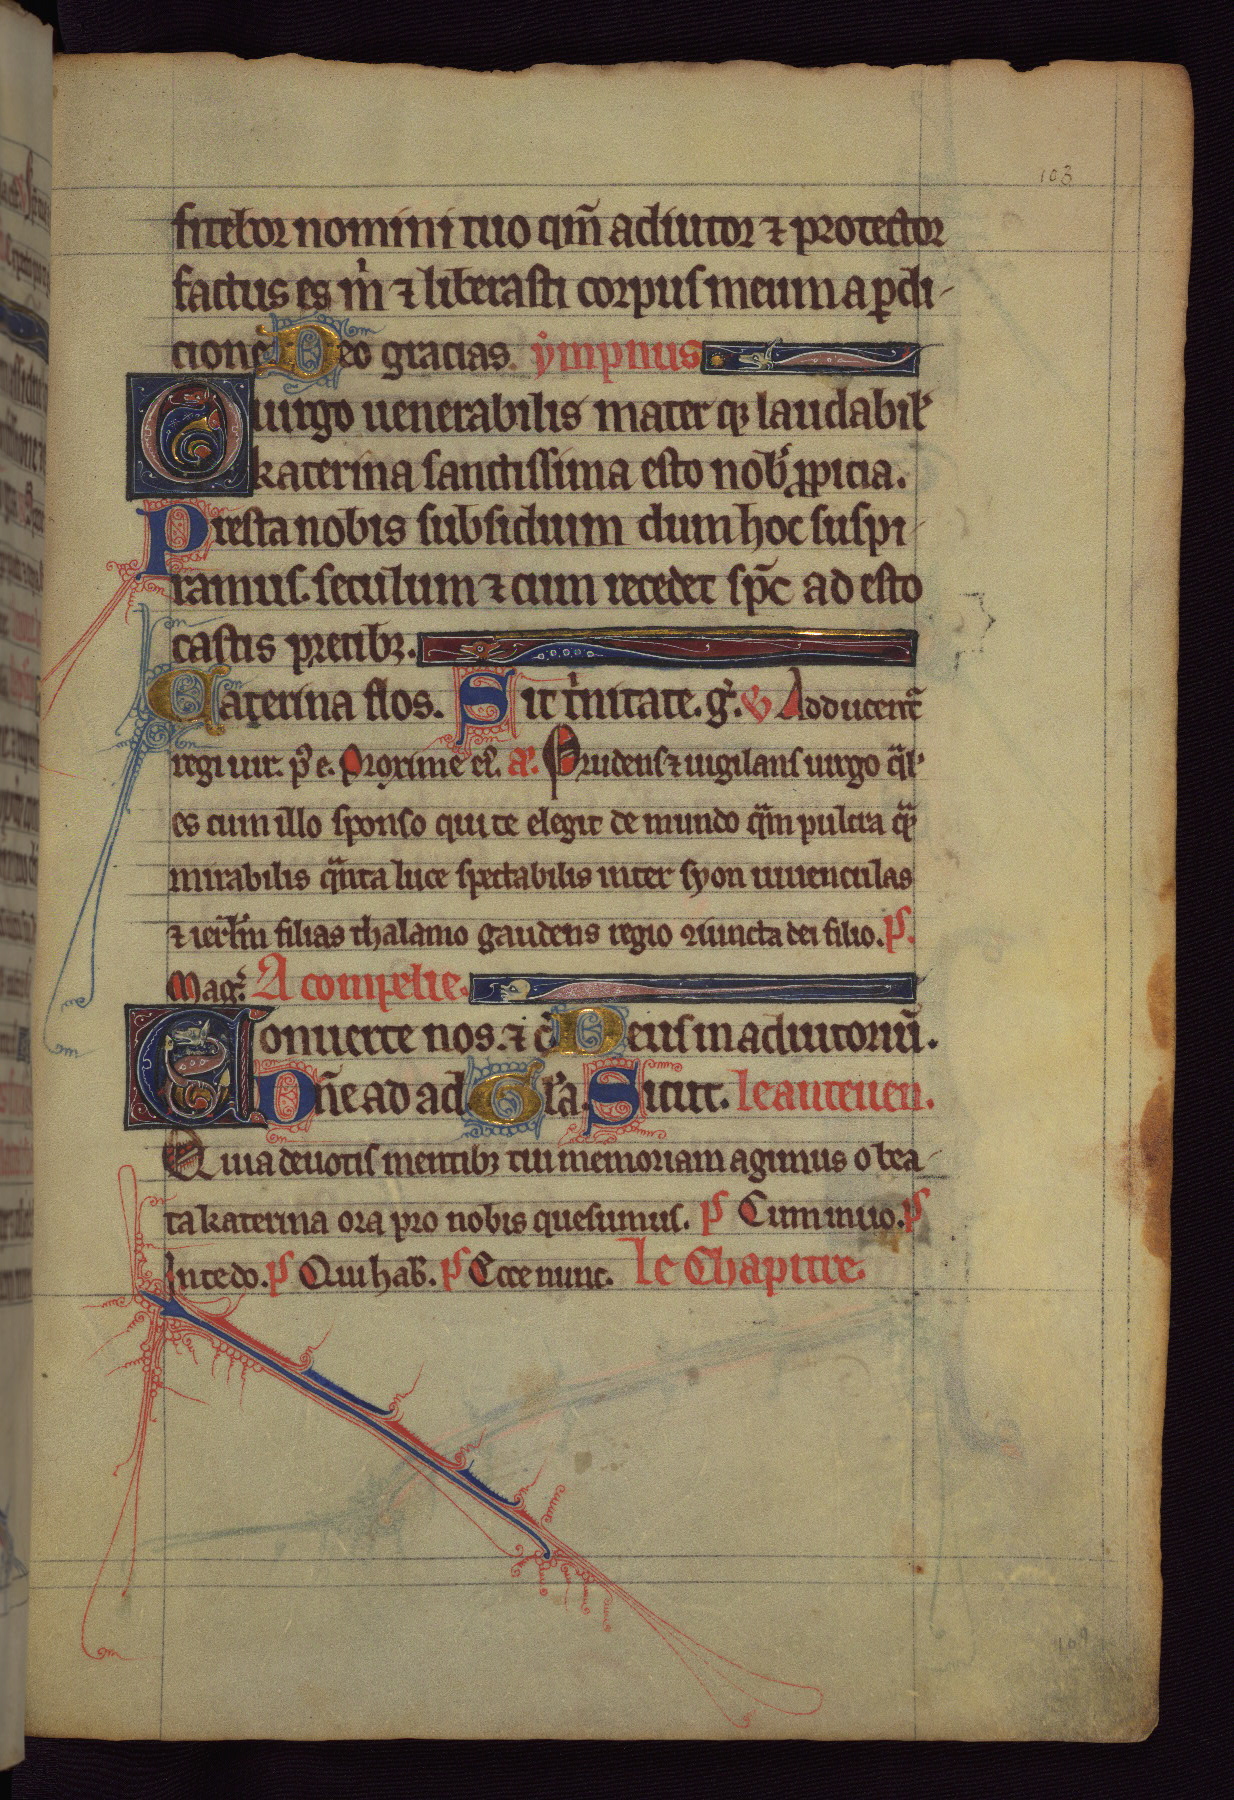 103
fitebor nomini tuo qm̃ adiutor ⁊ protector
factus es m̉ ⁊ liberasti corpus meum a ꝑdi-
cione Deo gracias. ympnus
O uirgo uenerabilis mater qꝫ laudabil'
katerina sanctissima esto nob' ꝓpicia.
Presta nobis subsidium dum hoc suspi-
ramus. seculum ⁊ cum recedet sp̃c ad esto
castis precibꝫ.
Caterina flos. Sit t'nitate. g'. Adducent̃
regi uir. p' e. Proxime ei'. a'. Prudens ⁊ uigilans uirgo q̃l'
es cum illo sponso qui te elegit de mundo q̃m pulcra q̃
mirabilis q̃nta luce spectabilis inter syon iuuenculas
⁊ ierl̃m filias thalamo gaudens regio ꝯiuncta dei filio. ps.
Mag'. A complie.
Conuerte nos. ⁊ c̃ Deus in adiutoriũ.
Dñe ad ad Gl'a. Sicut. le anteuen.
Quia deuotis mentibꝫ tui memoriam agimus o bea-
ta katerina ora pro nobis quesumus. ps Cum inuo. ps
In te do. ps Qui hab̃. ps Ecce nunc. le Chapitre.
109